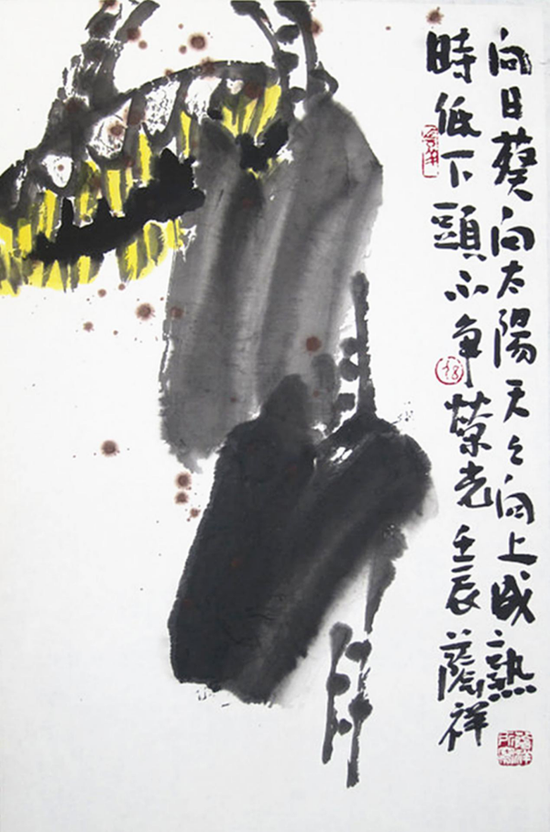 向日葵向太陽天々向上成熟
時低下頭不争榮光壬辰蔭祥